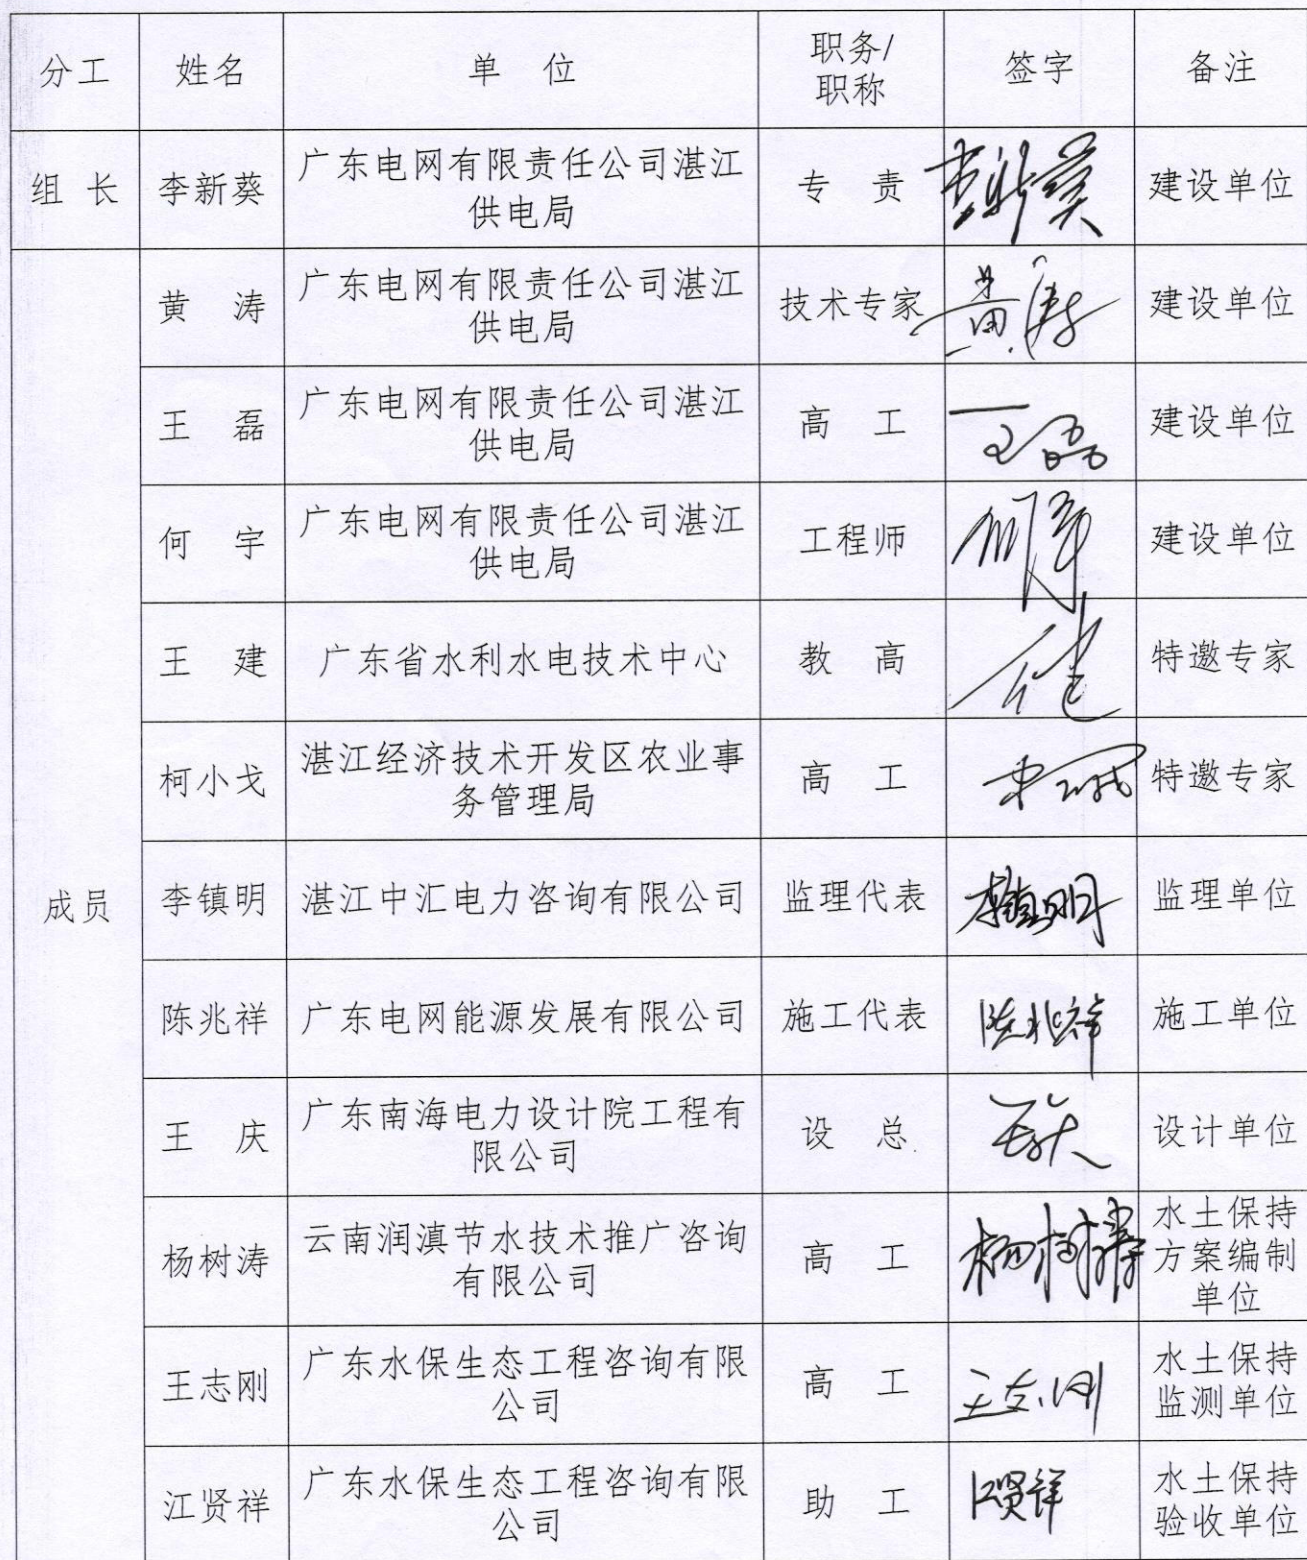 分工 姓名 单 位 职务/职称 签字 备注
组 长 李新葵 广东电网有限责任公司湛江供电局 专 责 李新葵 建设单位
成员
黄 涛 广东电网有限责任公司湛江供电局 技术专家 黄涛 建设单位
王 磊 广东电网有限责任公司湛江供电局 高 工 王磊 建设单位
何 宇 广东电网有限责任公司湛江供电局 工程师 何宇 建设单位
王 建 广东省水利水电技术中心 教 高 特邀专家
柯小戈 湛江经济技术开发区农业事务管理局 高 工 特邀专家
李镇明 湛江中汇电力咨询有限公司 监理代表 李镇明 监理单位
陈兆祥 广东电网能源发展有限公司 施工代表 陈兆祥 施工单位
王 庆 广东南海电力设计院工程有限公司 设 总 王庆 设计单位
杨树涛 云南润滇节水技术推广咨询有限公司 高 工 杨树涛 水土保持方案编制单位
王志刚 广东水保生态工程咨询有限公司 高 工 王志刚 水土保持监测单位
江贤祥 广东水保生态工程咨询有限公司 助 工 江贤祥 水土保持验收单位